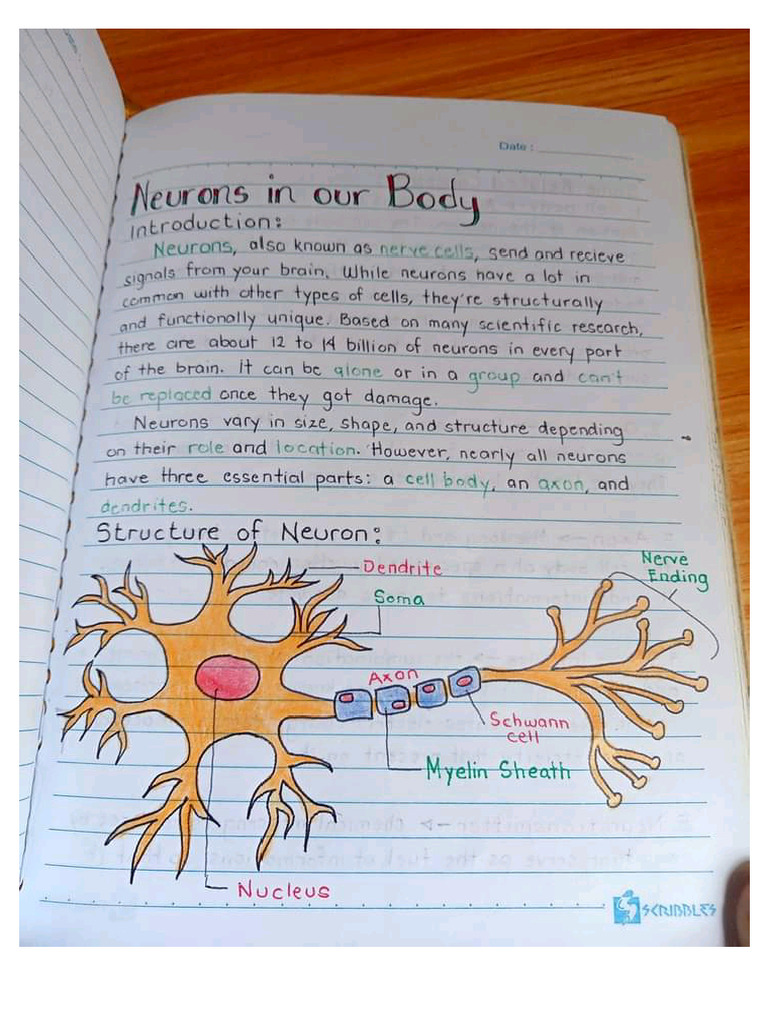 Date :
Neurons in our Body
Introduction:
Neurons, also known as nerve cells, send and recieve
signals from your brain. While neurons have a lot in
common with other types of cells, they're structurally
and functionally unique. Based on many scientific research,
there are about 12 to 14 billion of neurons in every part
of the brain. It can be alone or in a group and can't
be replaced once they got damage.
Neurons vary in size, shape, and structure depending
on their role and location. However, nearly all neurons
have three essential parts: a cell body, an axon, and
dendrites.
Structure of Neuron:
Dendrite
Soma
Nerve
Ending
Axon
Schwann
cell
Myelin Sheath
Nucleus
SCRIBBLES